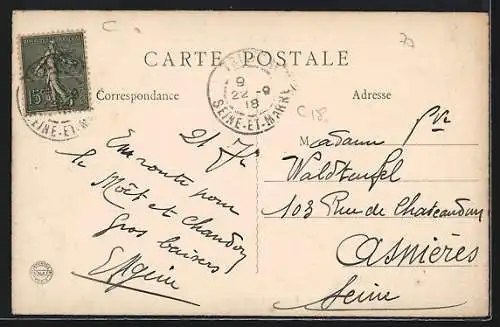 CARTE POSTALE
Correspondance
Adresse
15
9
22 -9
18
SEINE-ET-MARNE
SEINE-ET-M
C
C18.
21 7bre
En route pour
le Moët et Chandon
gros baisers
Madame
Waldteufel
103 Rue de Chateaudun
Asnières
Seine